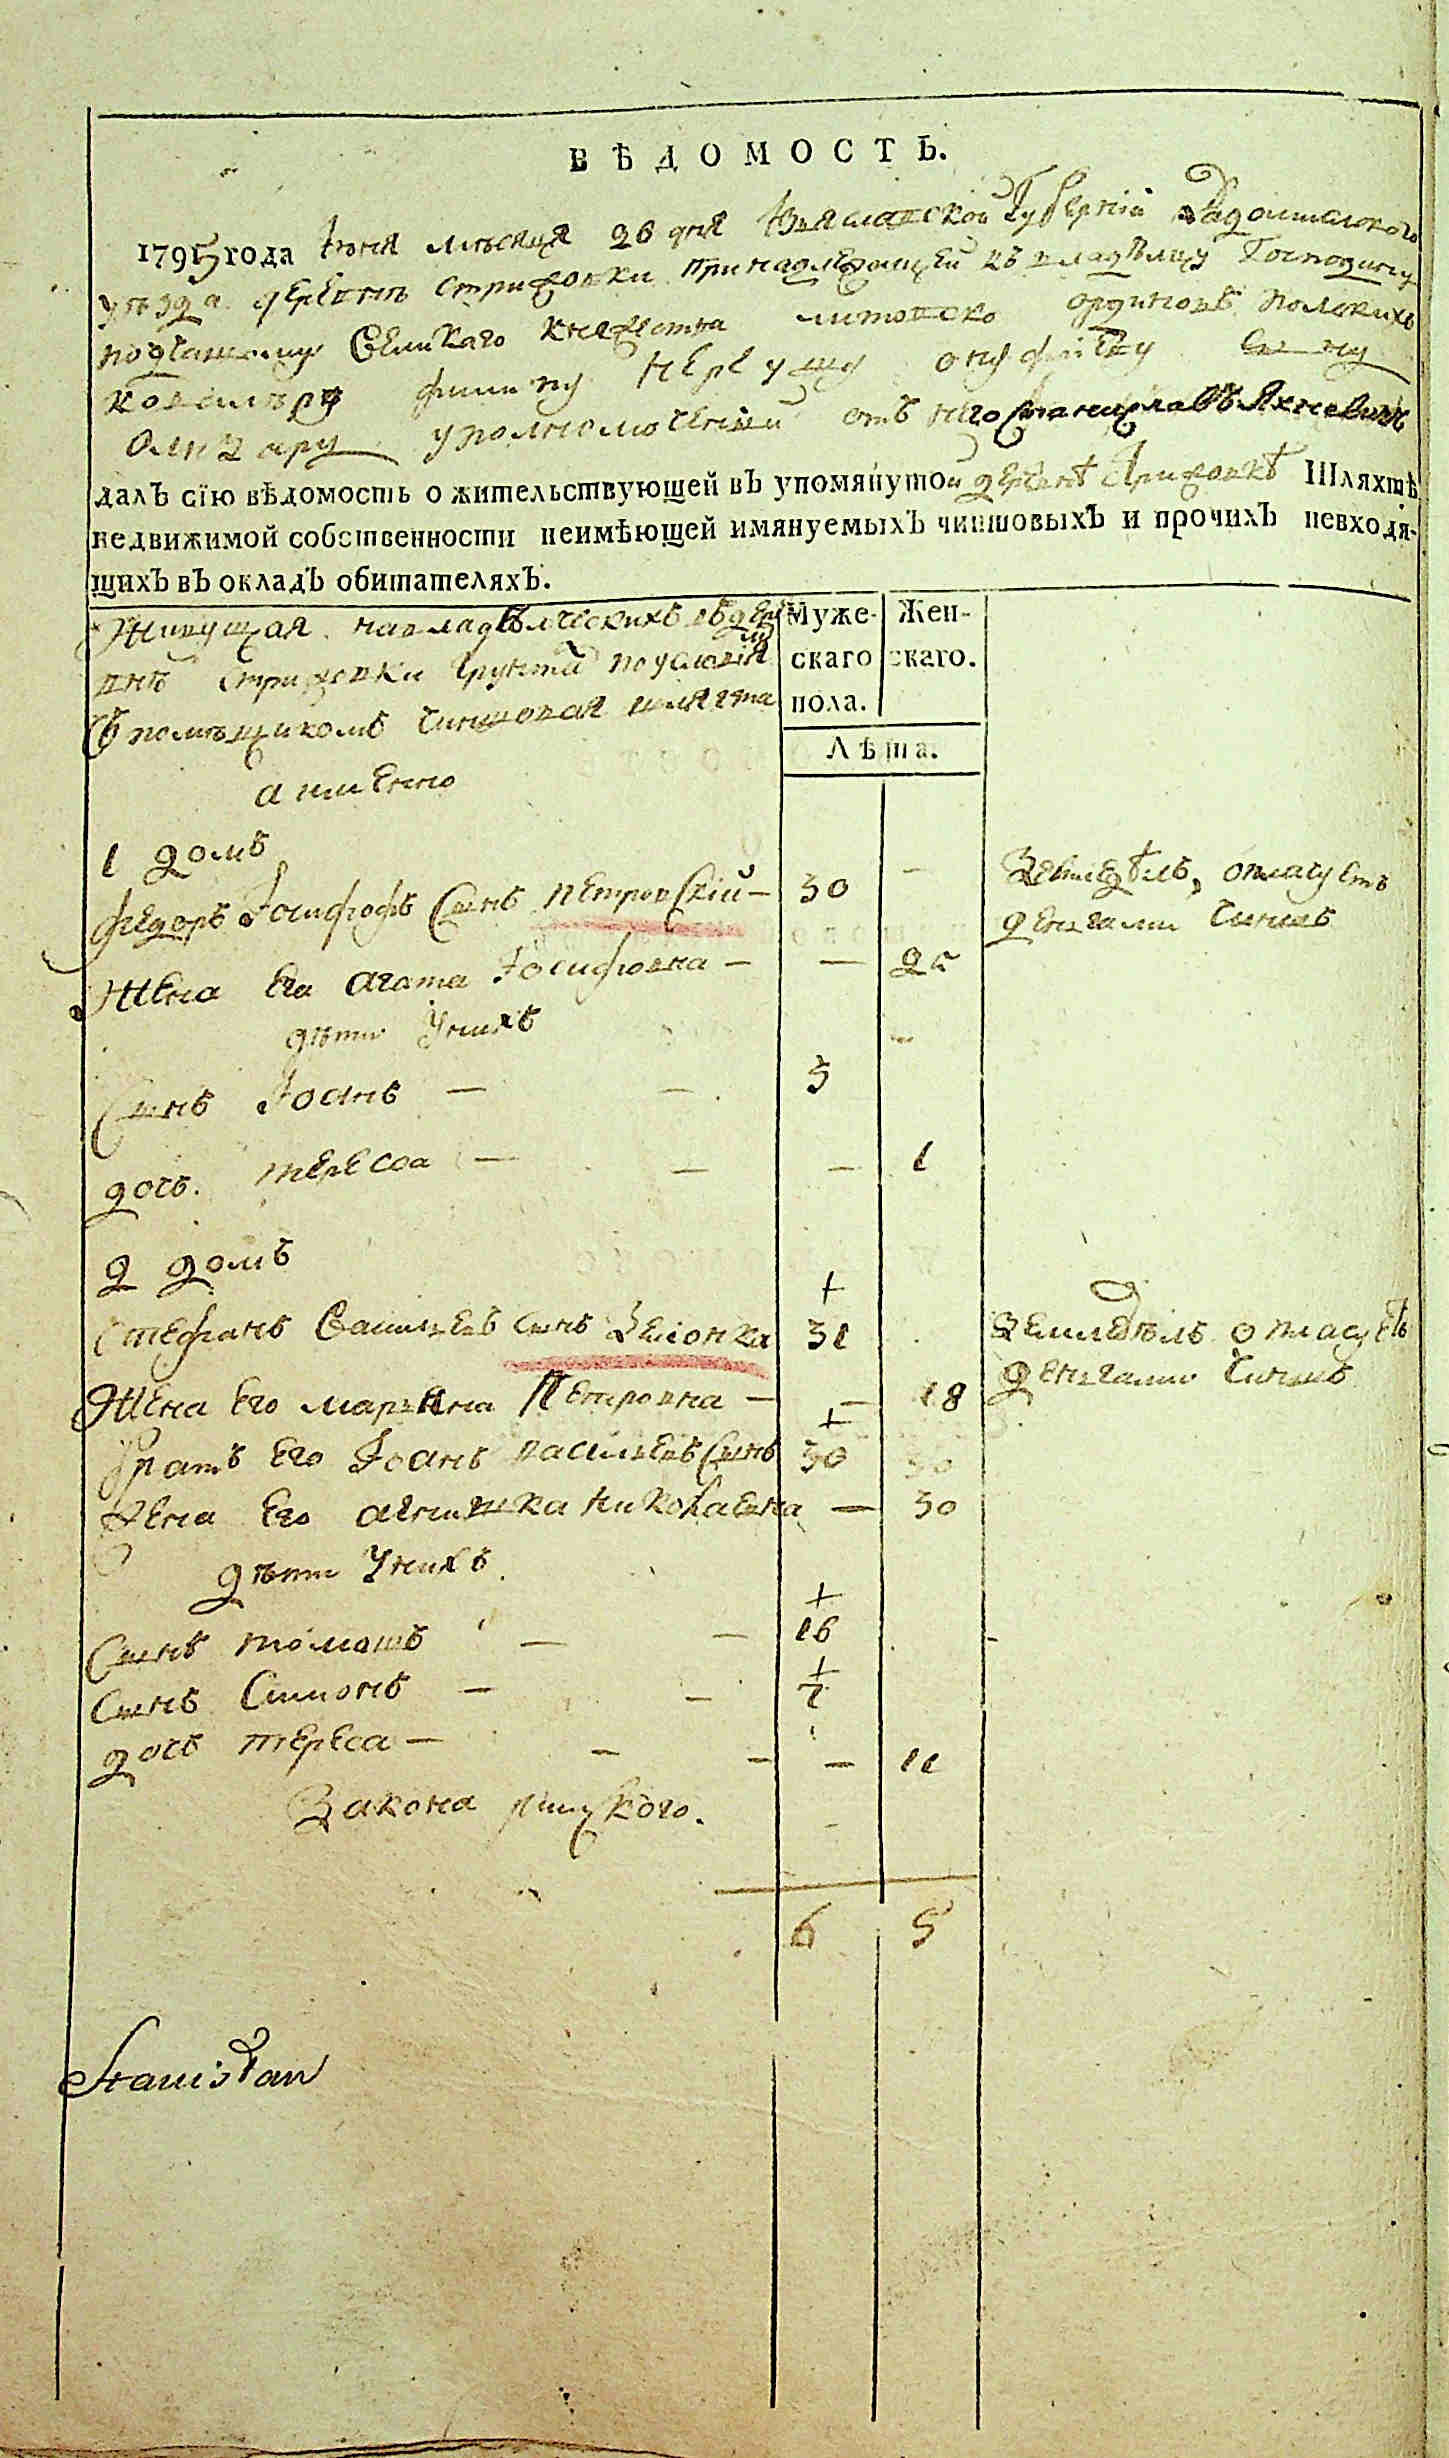 ВѢДОМОСТЬ.
1795 года Июня мѣсяца 26 дня Изяславской Губерніи Радомышлского
уѣзда деревни Стрижовки принадлежащей къ владѣлцу Господину
подчашому Великаго княжества литовско ординовъ полскихъ
ковалеру филипу Нерезу ону
уполномоченный отъ него Станиславъ Яхневичъ
далъ сїю вѣдомость о жительствующей въ упомянутой деревнѣ Стрижовкѣ Шляхтѣ
недвижимой собственности неимѣющей имянуемыхъ чиншовыхъ и прочихъ невходя-
щихъ въ окладъ обитателяхъ.
Живущая на владѣлческихъ въ дере
внѣ Стрижовки грунтахъ по условія
съ помѣщикомъ чиншовая шляхта
а именно
Муже- Жен-
скаго скаго.
пола.
Лѣта.
1 домъ
Федоръ Іосифофъ сынъ Петровскій — 30 — Земледѣлъ, оплачуетъ
денгами чиншъ
Жена его Агата Іосифовна — — 25
дѣти у нихъ
Сынъ Іоанъ — — 5
дочъ Тереса — — — 1
2 домъ
+
Стефанъ Василевъ сынъ Зелонка 31 Земледѣлъ оплачуетъ
денгами чиншъ
Жена его Марьяна Петровна — — 18
+
Братъ его Іоанъ Василевъ сынъ 30
Жена его Агнишка Николаевна — 30
дѣти у нихъ
+
Сынъ Томашъ — — 16
+
Сынъ Симонъ — — 7
дочъ Тереса — — — — 11
Закона римского.
6 5
Stanisław